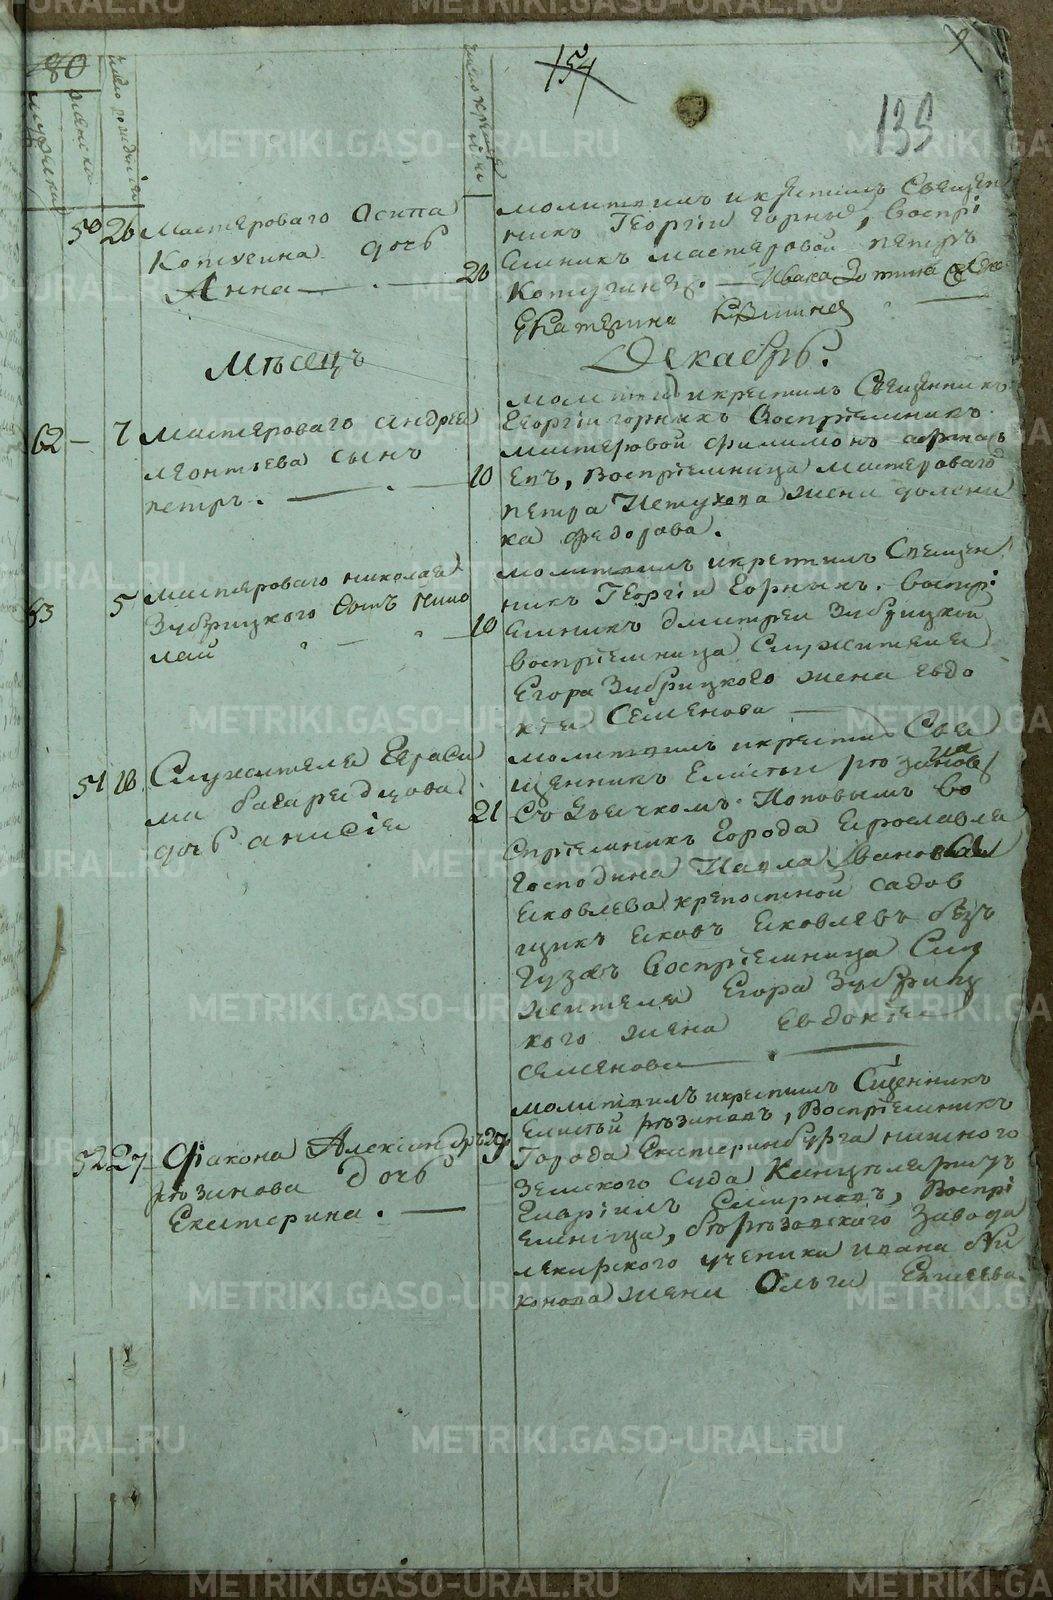 80
154
139
мужеска
женска
число рождѣнiя
число крещенiя
50 26 Мастероваго Осипа
Котугина дочь
Анна 26
молитвилъ и крѣтилъ Свещен
никъ Георгiи Горныхъ, воспрi
емникъ мастеровой петръ
Котугинъ. Ивана Зотина
Екатерина
Мѣсецъ Декабрь.
62 7 Мастероваго андрея
леонтьева сынъ
петръ. 10
молитвилъ и крестилъ Священникъ
Георгiи горныхъ Воспрiемникъ
мастеровой филимонъ афанась
евъ, Воспрiемница мастероваго
петра Петухова жена
ка федорова.
63 5 Мастероваго николая
Зубрицкого сынъ нико
лай 10
молитвилъ и крестилъ Свещен
никъ Георгiи Горныхъ. воспрi
емникъ дмитреи Зубрицкой
воспрiемница Служителя
Егора Зубрицкого жена евдо
кея Семенова
51 18 Служителя Гераси
ма
дочь анисiя 21
молитвилъ и крестилъ Све
щенникъ Елисеи рѣзановъ
Съ Дьячкомъ Поповымъ во
спрiемникъ Города Ерославля
господина Павла Иванова
Яковлева крепостной садов
щикъ Яковъ Яковлевъ
Воспрiемница Слу
жителя Егора Зубриц
кого жена Евдокiя
семенова
52 27 Дiакона Александра
рѣзанова дочь
Екатерина. 29
молитвилъ и крестилъ Сщенникъ
Елисеи рѣзановъ, Воспрiемникъ
Города Екатеринбурга нижнего
земского суда Канцеляристъ
Гаврiилъ Смирновъ, Воспрi
емница, березовского Завода
лекарского ученика ивана
конова жена Ольга Елисеева.
METRIKI.GASO-URAL.RU